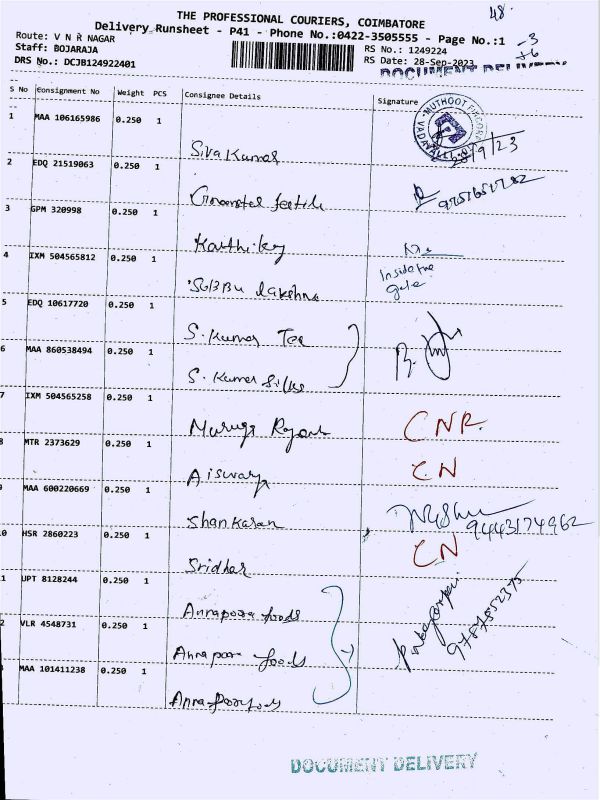 48
THE PROFESSIONAL COURIERS, COIMBATORE
Delivery Runsheet - P41 - Phone No.:0422-3505555 - Page No.:1
-3
Route: V N R NAGAR
RS No.: 1249224
Staff: BOJARAJA
RS Date: 28-Sep-2023
DRS No.: DCJB124922401
DOCUMENT DELIVERY
S No Consignment No Weight PCS Consignee Details Signature
MUTHOOT FINCORP
VADAVALLI
1 MAA 106165986 0.250 1
Siva Kumar 28/9/23
2 EDQ 21519063 0.250 1
3 GPM 320998 0.250 1
Karthikey
4 IXM 504565812 0.250 1
Inside the
gate
5 EDQ 10617720 0.250 1
S. Kumar Tex
6 MAA 860538494 0.250 1
S. Kumar Silks
7 IXM 504565258 0.250 1
Muruga CNR.
8 MTR 2373629 0.250 1
Aiswarya CN
9 MAA 600220669 0.250 1
Shankaran 9443174962
10 HSR 2860223 0.250 1
Sridhar CN
11 UPT 8128244 0.250 1
Annapoora foods 9787552375
12 VLR 4548731 0.250 1
Annapoora foods
MAA 101411238 0.250 1
Annapoora foods
DOCUMENT DELIVERY